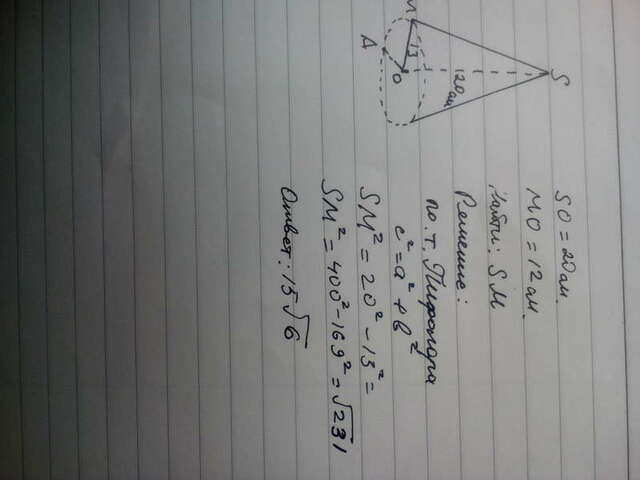 S
M
A
O
13
120 см
SO = 20 см.
MO = 12 см.
Найти: SM
Решение:
по. т. Пифагора
c² = a² + b²
SM² = 20² - 13² =
SM² = 400² - 169² = √231
Ответ: 15√6